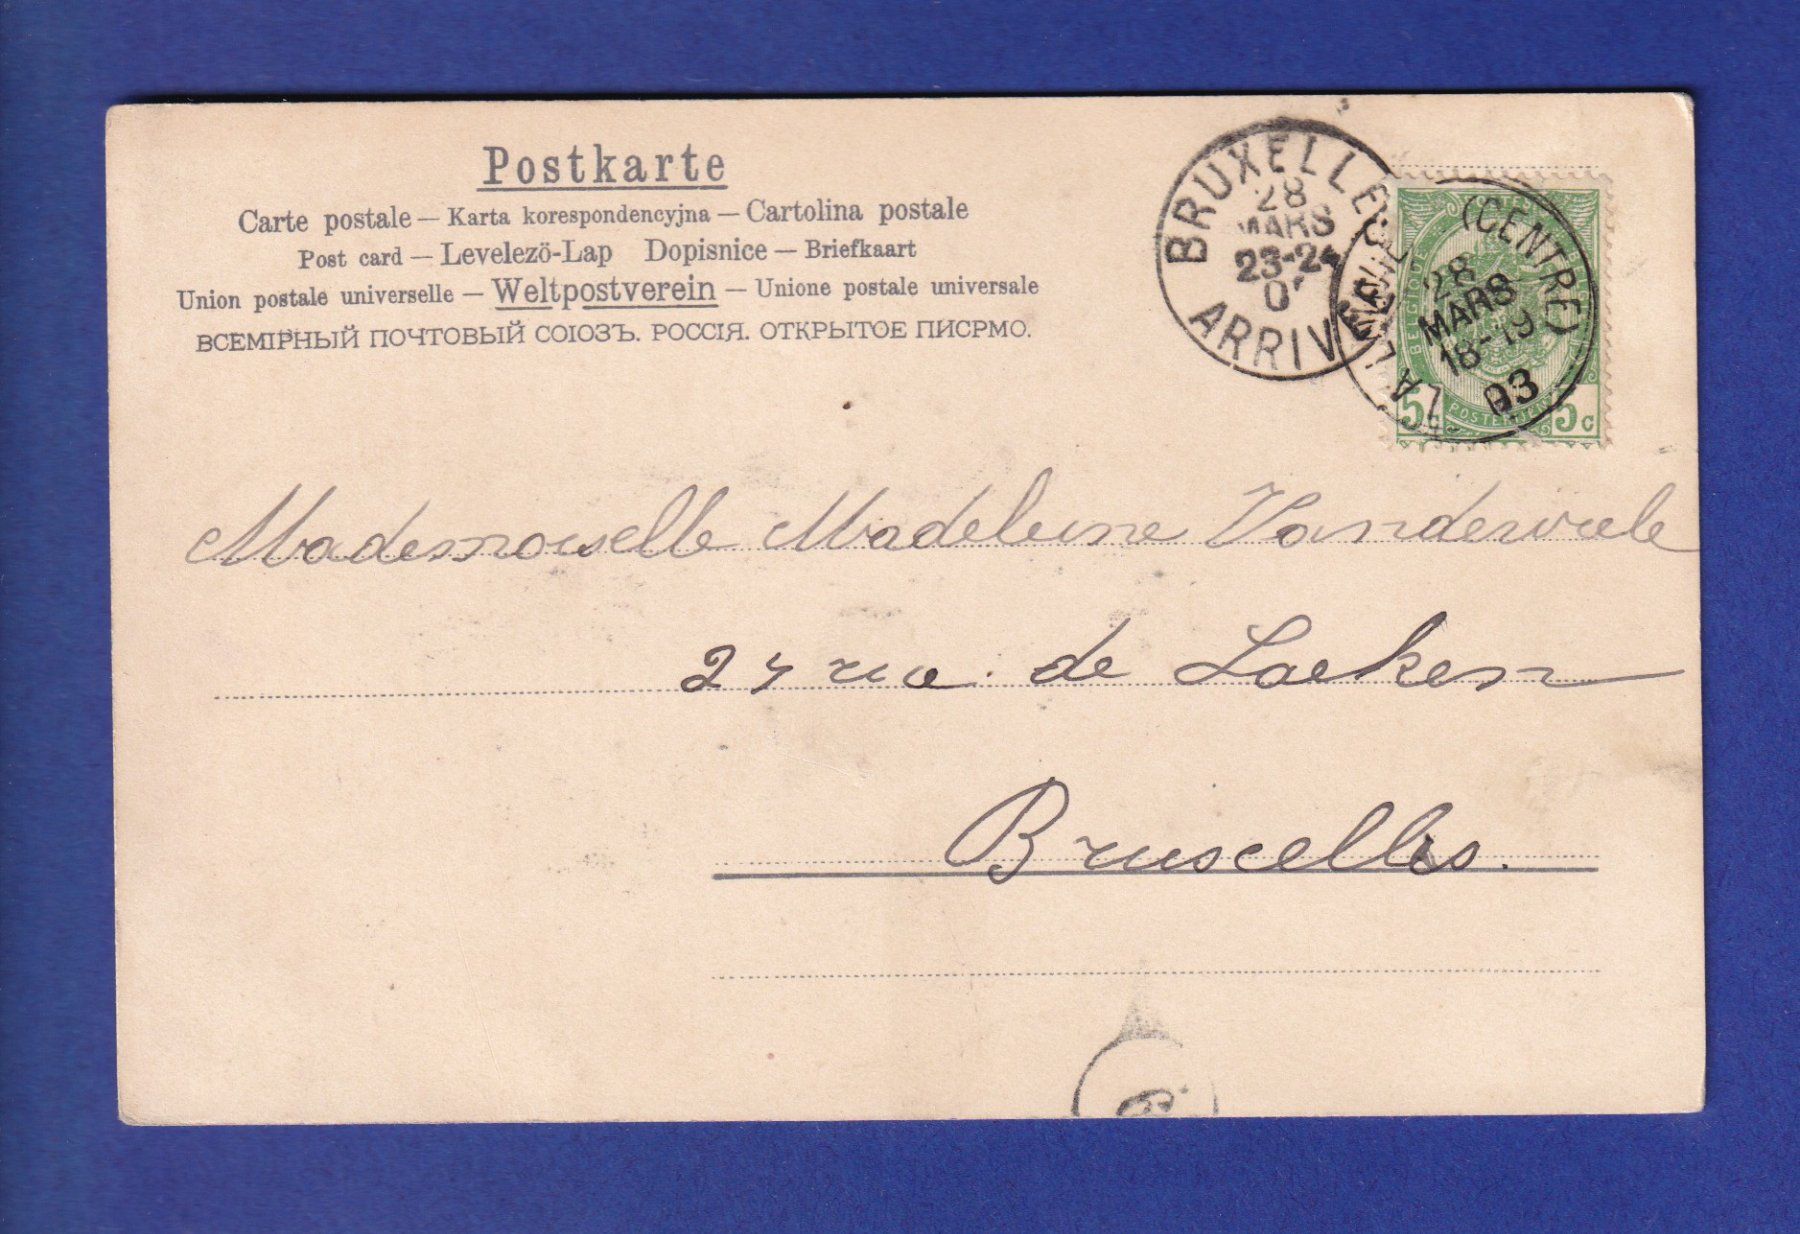 Postkarte
Carte postale — Karta korespondencyjna — Cartolina postale
Post card — Levelezö-Lap Dopisnice — Briefkaart
Union postale universelle — Weltpostverein — Unione postale universale
ВСЕМІРНЫЙ ПОЧТОВЫЙ СОЮЗЪ. РОССІЯ. ОТКРЫТОЕ ПИСРМО.
BRUXELLES
28
MARS
23-24
ARRIVÉE
(CENTRE)
28
MARS
18-19
03
BELGIQUE
5c 5c
Mademoiselle Madeleine Vanderviele
27 rue de Laeken
Bruxelles.